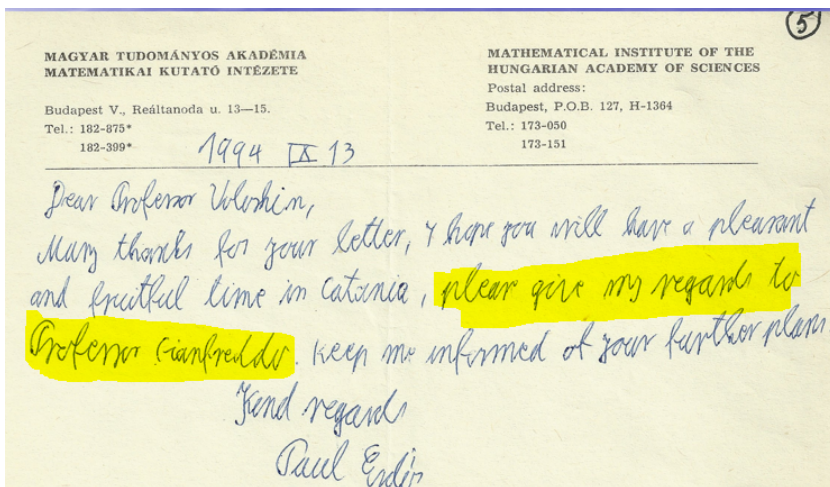 5
MAGYAR TUDOMÁNYOS AKADÉMIA
MATEMATIKAI KUTATÓ INTÉZETE
Budapest V., Reáltanoda u. 13—15.
Tel.: 182-875*
182-399*
MATHEMATICAL INSTITUTE OF THE
HUNGARIAN ACADEMY OF SCIENCES
Postal address:
Budapest, P.O.B. 127, H-1364
Tel.: 173-050
173-151
1994 IX 13
Dear Professor Voloshin,
Many thanks for your letter, I hope you will have a pleasant
and fruitful time in Catania, please give my regards to
Professor Gianfreddo. Keep me informed of your further plans
Kind regards
Paul Erdős